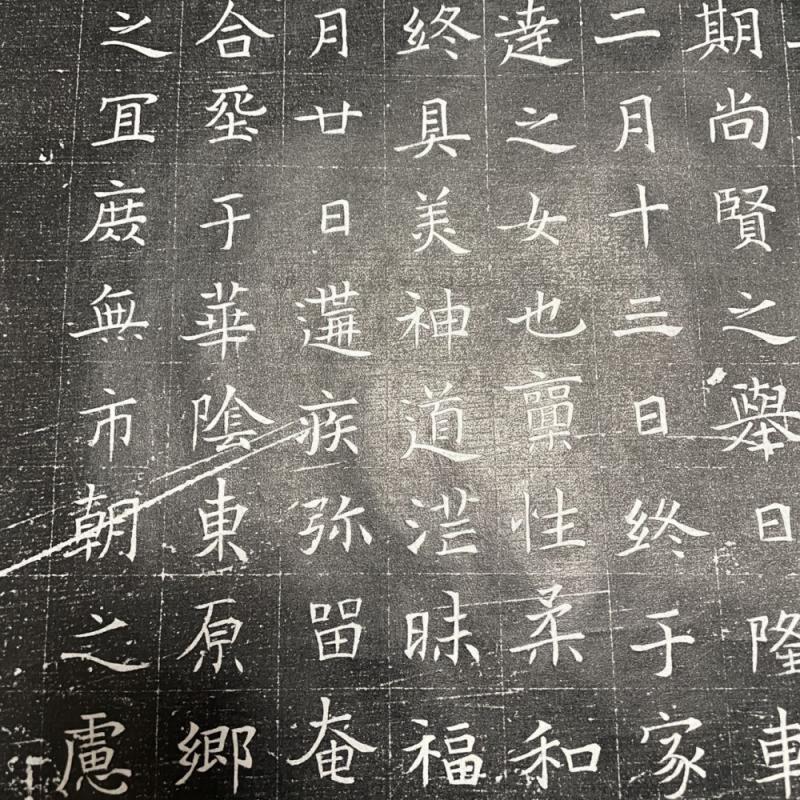 期尚賢之舉日隆車
二月十三日終于家
逹之女也禀性柔和
終具美神道茫昧福
月廿日遘疾弥留奄
合垩于華陰東原鄉
之冝庶無市朝之慮